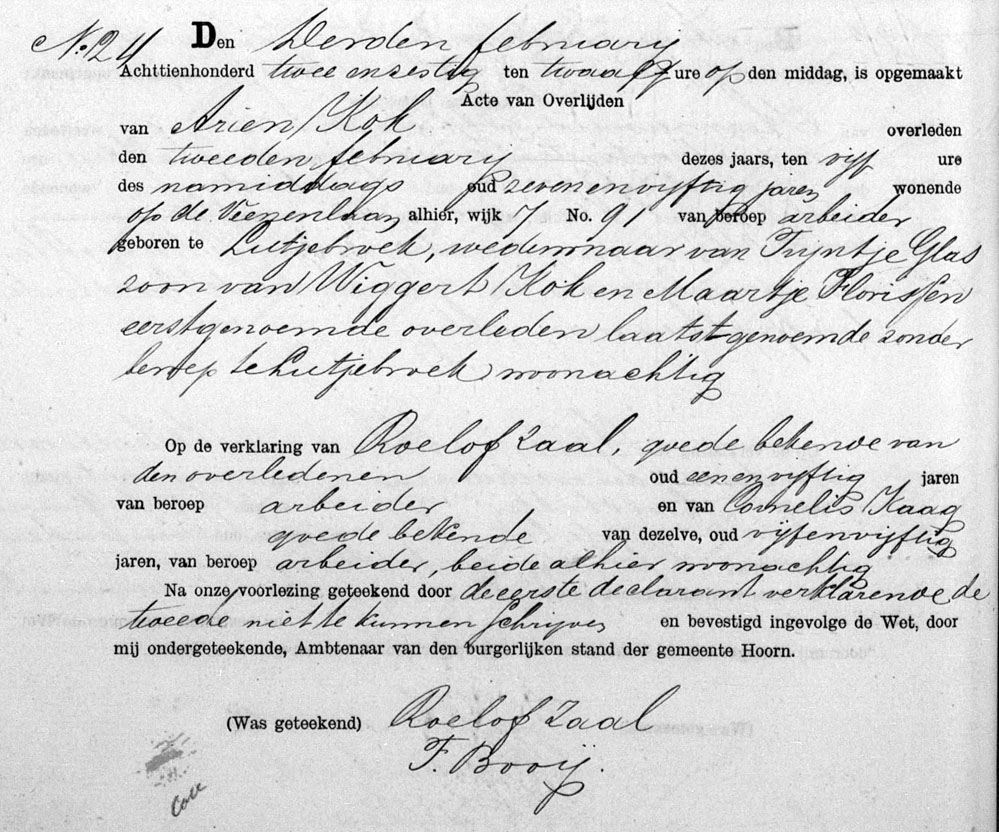 No. 24 Den derden february
Achttienhonderd twee en zestig ten twaalf ure op den middag, is opgemaakt
Acte van Overlijden
van Arien Kok overleden
den tweeden february dezes jaars, ten vijf ure
des namiddags oud zevenenvijftig jaren wonende
op de Veenenlaan, alhier, wijk 7 No. 9 van beroep arbeider
geboren te Lutjebroek, weduwnaar van Trijntje Glas
zoon van Wiggert Kok en Maartje Florissen
eerstgenoemde overleden laatstgenoemde zonder
beroep te Lutjebroek woonachtig
Op de verklaring van Roelof Zaal, goede bekende van
den overledenen oud eenenvijftig jaren
van beroep arbeider en van Cornelis Kaag
goede bekende van dezelve, oud vijfenvijftig
jaren, van beroep arbeider, beide alhier woonachtig
Na onze voorlezing geteekend door de eerste declarant verklarende de
tweede niet te kunnen schrijven en bevestigd ingevolge de Wet, door
mij ondergeteekende, Ambtenaar van den burgerlijken stand der gemeente Hoorn.
(Was geteekend) Roelof Zaal
F. Booij.